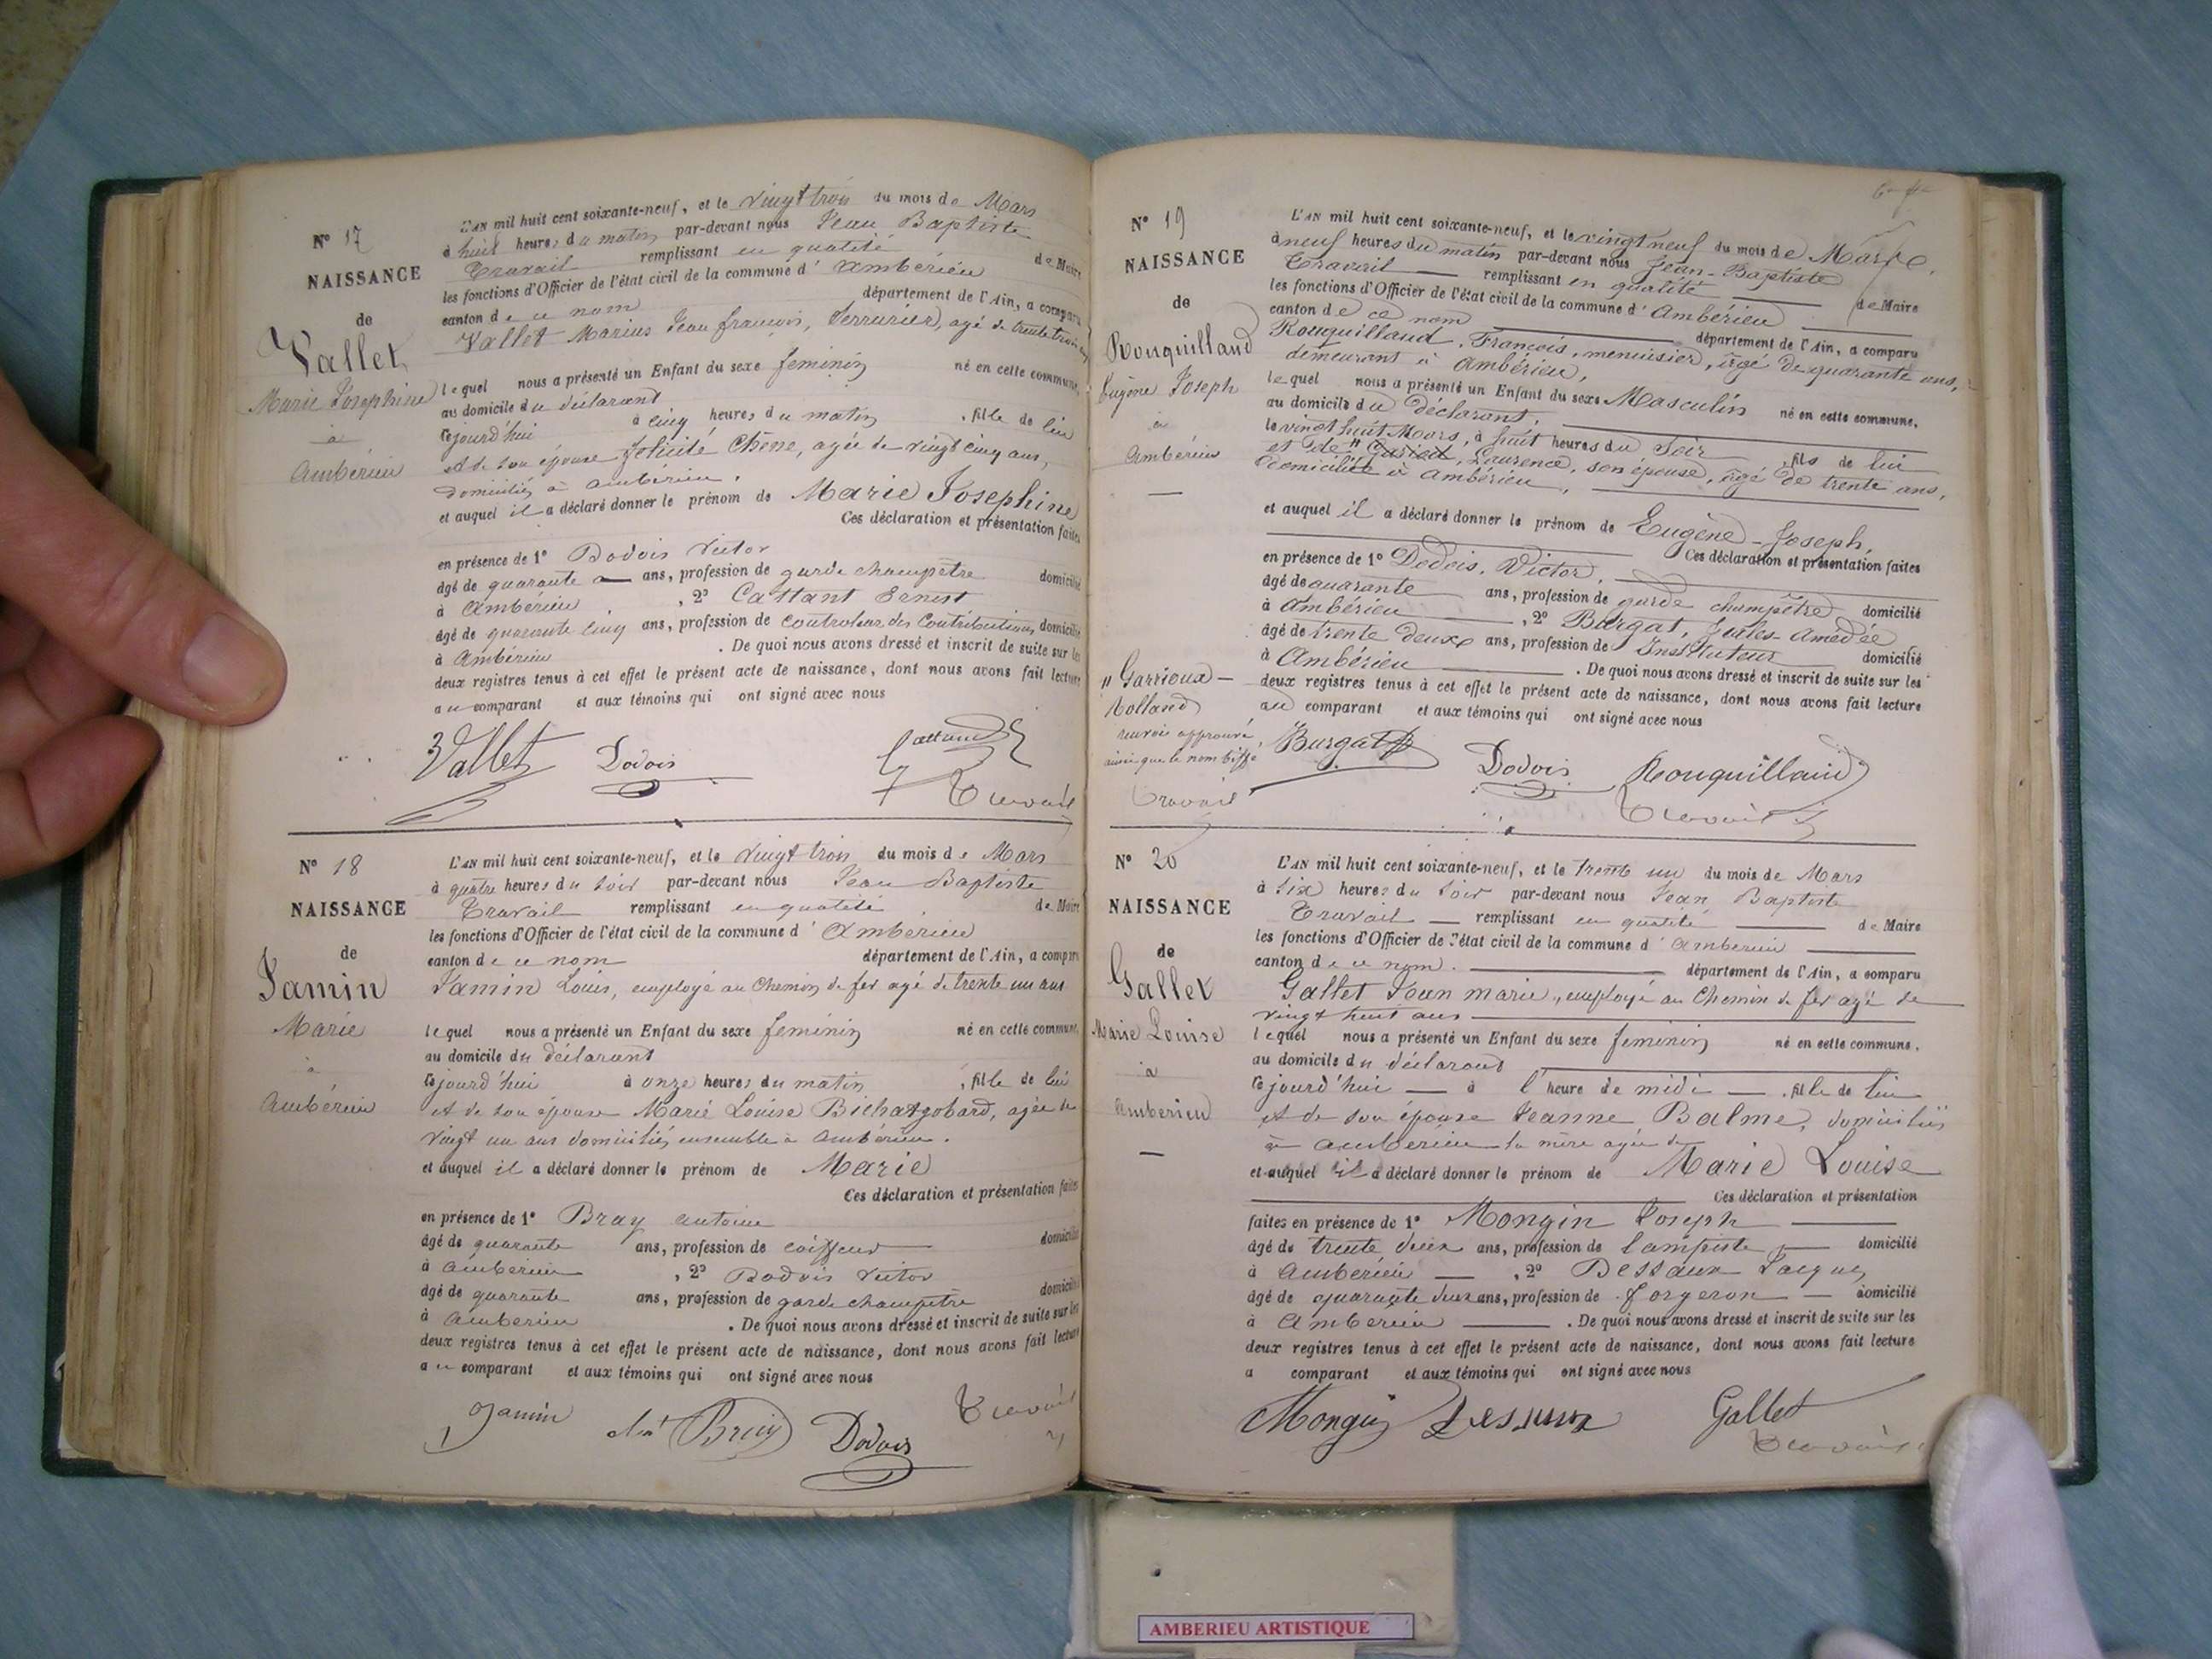 N° 17
NAISSANCE
de
Vallet
Marie Josephine
à
Ambérieu
L'AN mil huit cent soixante-neuf, et le vingt trois du mois de Mars
à huit heures du matin par-devant nous Jean Baptiste
Travail remplissant en qualité de Maire
les fonctions d'Officier de l'état civil de la commune d'Ambérieu
canton de ce nom département de l'Ain, a comparu
Vallet Marius Jean françois, Serrurier, agé de trente trois
lequel nous a présenté un Enfant du sexe feminin né en cette commune
au domicile du déclarant
cejourd'hui à cinq heures du matin, fille de lui
et de son épouse Félicité Chêne, agée de vingt cinq ans,
domiciliés à Ambérieu.
et auquel il a déclaré donner le prénom de Marie Josephine
Ces déclaration et présentation faites
en présence de 1° Dodois Victor
âgé de quarante ans, profession de garde champêtre domicilié
à Ambérieu, 2° Cattant Ernest
âgé de quarante cinq ans, profession de Controleur des Contributions domicilié
à Ambérieu. De quoi nous avons dressé et inscrit de suite sur les
deux registres tenus à cet effet le présent acte de naissance, dont nous avons fait lecture
au comparant et aux témoins qui ont signé avec nous
Vallet Dodois Cattant
Travail
N° 18
NAISSANCE
de
Jamin
Marie
à
Ambérieu
L'AN mil huit cent soixante-neuf, et le vingt trois du mois de Mars
à quatre heures du soir par-devant nous Jean Baptiste
Travail remplissant en qualité de Maire
les fonctions d'Officier de l'état civil de la commune d'Ambérieu
canton de ce nom département de l'Ain, a comparu
Jamin Louis, employé au Chemin de fer agé de trente un ans
lequel nous a présenté un Enfant du sexe feminin né en cette commune
au domicile du déclarant
cejourd'hui à onze heures du matin, fille de lui
et de son épouse Marie Louise Bichatgobard, agée de
vingt un ans domiciliés ensemble à Ambérieu.
et auquel il a déclaré donner le prénom de Marie
Ces déclaration et présentation faites
en présence de 1° Bray antoine
âgé de quarante ans, profession de coiffeur domicilié
à Ambérieu, 2° Dodois Victor
âgé de quarante ans, profession de garde champêtre domicilié
à Ambérieu. De quoi nous avons dressé et inscrit de suite sur les
deux registres tenus à cet effet le présent acte de naissance, dont nous avons fait lecture
au comparant et aux témoins qui ont signé avec nous
Jamin Bray Dodois Travail
N° 19
NAISSANCE
de
Rouquilland
Eugène Joseph
à
Ambérieu
L'AN mil huit cent soixante-neuf, et le vingt neuf du mois de Mars
à neuf heures du matin par-devant nous Jean-Baptiste
Travail remplissant en qualité de Maire
les fonctions d'Officier de l'état civil de la commune d'Ambérieu
canton de ce nom département de l'Ain, a comparu
Rouquilland, François, menuisier, âgé de quarante ans,
demeurant à Ambérieu,
lequel nous a présenté un Enfant du sexe Masculin né en cette commune,
au domicile du déclarant,
le vingt huit Mars, à huit heures du Soir, fils de lui
et de " Laurence, son épouse, âgé de trente ans,
domicilié à Ambérieu,
et auquel il a déclaré donner le prénom de Eugène-Joseph,
Ces déclaration et présentation faites
en présence de 1° Dodois, Victor,
âgé de quarante ans, profession de garde champêtre domicilié
à Ambérieu, 2° Burgat, Jules Amédée
âgé de trente deux ans, profession de Instituteur domicilié
à Ambérieu. De quoi nous avons dressé et inscrit de suite sur les
deux registres tenus à cet effet le présent acte de naissance, dont nous avons fait lecture
au comparant et aux témoins qui ont signé avec nous
" Garrioud-
Rolland
renvoi approuvé,
ainsi que le nom biffé
Travail
Burgat Dodois Rouquilland
Travail
N° 20
NAISSANCE
de
Gallet
Marie Louise
à
Ambérieu
L'AN mil huit cent soixante-neuf, et le trente un du mois de Mars
à six heures du soir par-devant nous Jean Baptiste
Travail remplissant en qualité de Maire
les fonctions d'Officier de l'état civil de la commune d'Ambérieu
canton de ce nom. département de l'Ain, a comparu
Gallet Jean marie, employé au Chemin de fer agé de
vingt huit ans
lequel nous a présenté un Enfant du sexe feminin né en cette commune,
au domicile du déclarant
cejourd'hui à l'heure de midi, fille de lui
et de son épouse Jeanne Balme, domiciliés
à Ambérieu la mère agée de
et auquel il a déclaré donner le prénom de Marie Louise
Ces déclaration et présentation
faites en présence de 1° Mongin Joseph
âgé de trente deux ans, profession de lampiste domicilié
à Ambérieu, 2° Dessaux Jacques
âgé de quarante deux ans, profession de forgeron domicilié
à Ambérieu. De quoi nous avons dressé et inscrit de suite sur les
deux registres tenus à cet effet le présent acte de naissance, dont nous avons fait lecture
a comparant et aux témoins qui ont signé avec nous
Mongin Gallet
Travail
AMBERIEU ARTISTIQUE